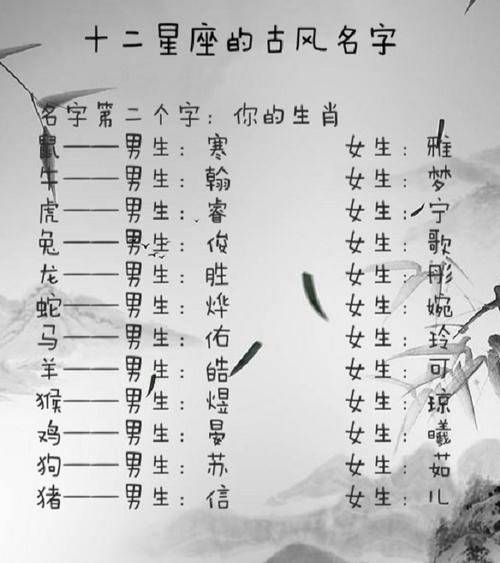 十二星座的古风名字
名字第二个字：你的生肖
鼠——男生：寒 女生：雅
牛——男生：翰 女生：梦
虎——男生：睿 女生：宁
兔——男生：俊 女生：歌
龙——男生：胜 女生：彤
蛇——男生：烨 女生：婉
马——男生：佑 女生：玲
羊——男生：皓 女生：可
猴——男生：煜 女生：琼
鸡——男生：晏 女生：曦
狗——男生：苏 女生：茹
猪——男生：信 女生：儿